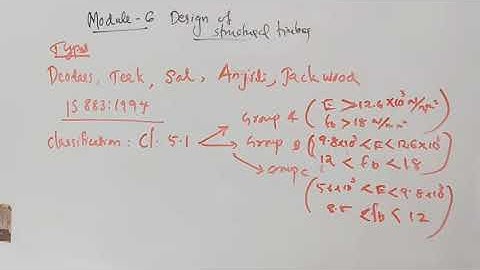 Module-6 Design of
structural timber
Types
Deodar, Teak, Sal, Anjili, Jackwood
IS 883:1994
classification: Cl. 5.1
Group A (E > 12.6 × 10³ N/mm²
fb > 18 N/mm²)
Group B (9.8×10³ < E < 12.6×10³
12 < fb < 18)
Group C
(5.6×10³ < E < 9.8×10³
8.5 < fb < 12)